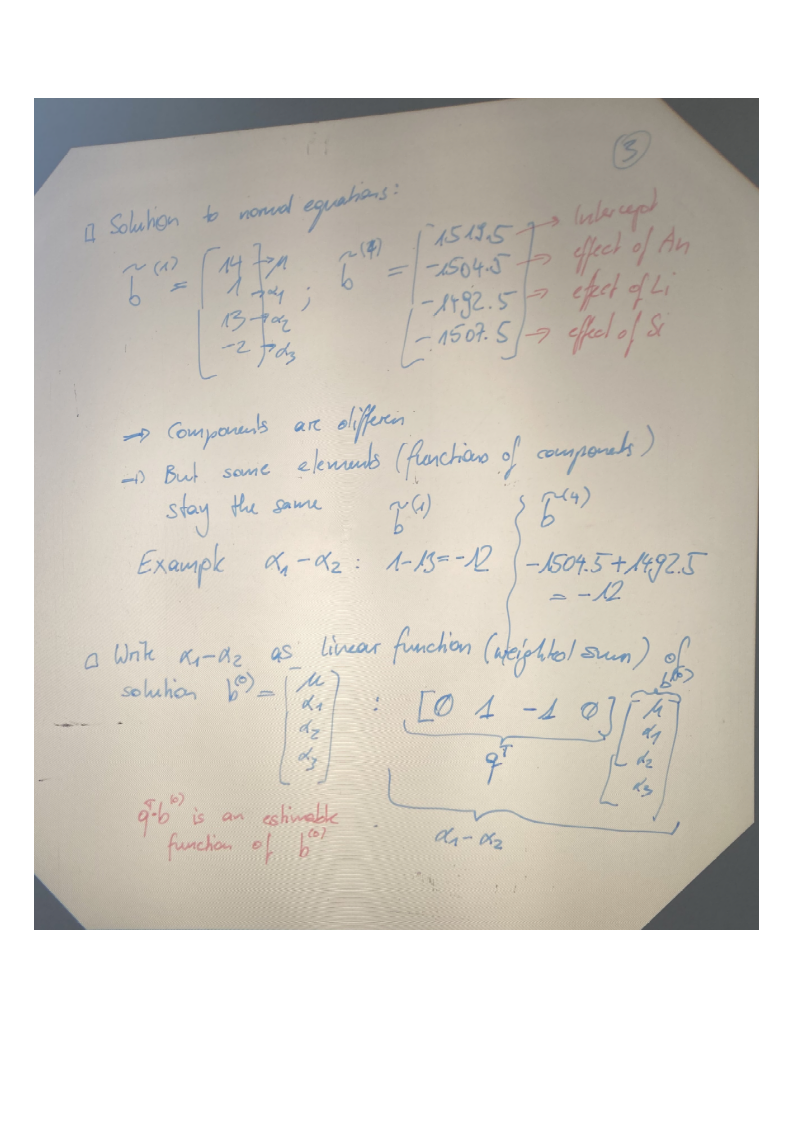 3
Solution to normal equations:
b̃⁽¹⁾ = [14 → μ
1 → α₁
13 → α₂
-2 → α₃] ;
b̃⁽⁴⁾ = [1519.5 → Intercept
-1504.5 → effect of An
-1492.5 → effect of Li
-1507.5 → effect of Si]
→ Components are differen
→ But same elements (functions of components)
stay the same b̃⁽¹⁾ b̃⁽⁴⁾
Example α₁ - α₂ : 1-13=-12 -1504.5+1492.5
= -12
Write α₁-α₂ as linear function (weighted sum) of
solution b⁽⁰⁾ = [μ α₁ α₂ α₃] : [0 1 -1 0] [μ α₁ α₂ α₃] b⁽⁰⁾
qᵀ
α₁ - α₂
qᵀ·b⁽⁰⁾ is an estimable
function of b⁽⁰⁾